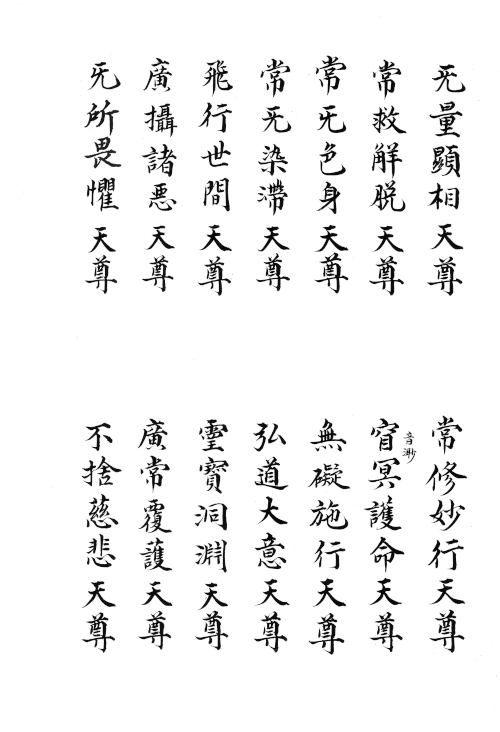 无量顯相天尊
常救解脱天尊
常无色身天尊
常无染滯天尊
飛行世間天尊
廣攝諸悪天尊
无所畏懼天尊
常修妙行天尊
音渺
窅冥護命天尊
無礙施行天尊
弘道大意天尊
靈寳洞淵天尊
廣常覆護天尊
不捨慈悲天尊